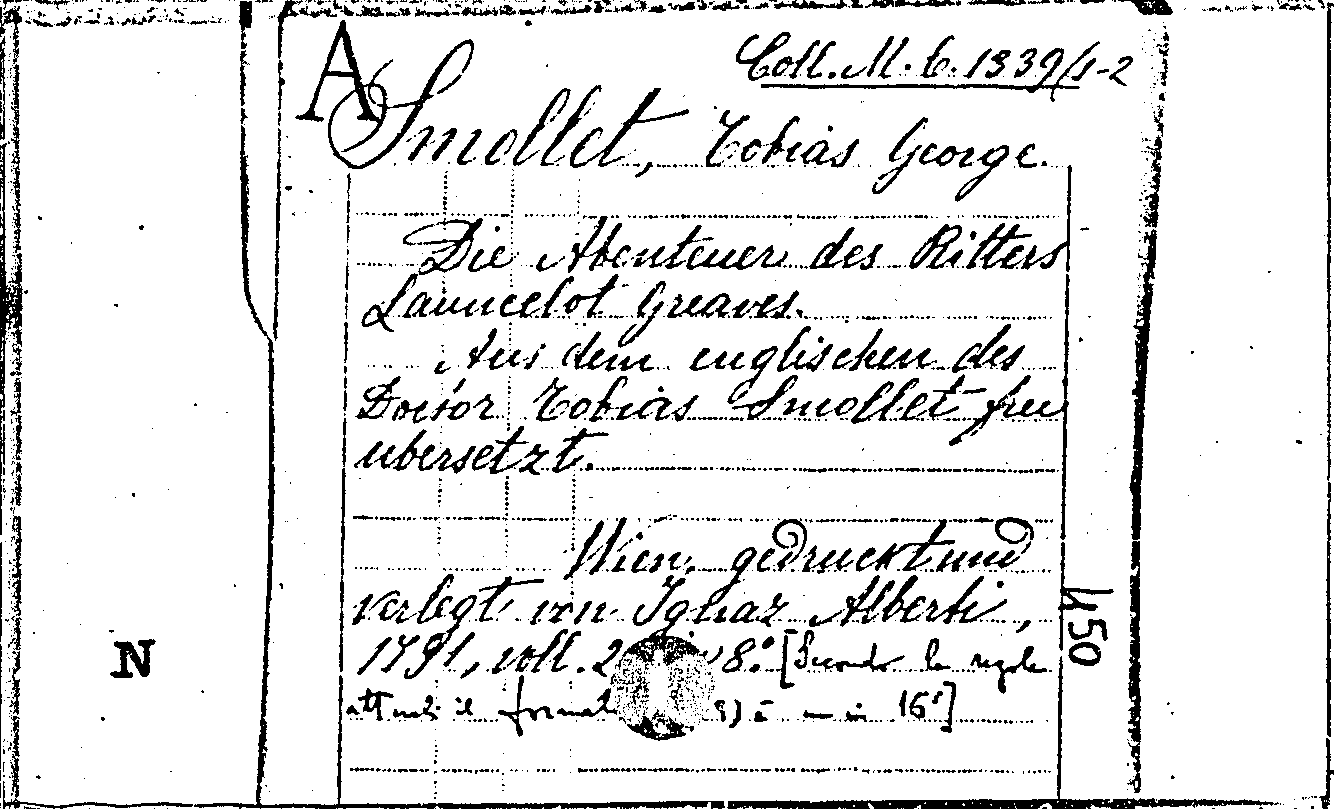 A
Coll. M. 6. 1339/1-2
Smollet, Tobias George.
Die Abenteuer des Ritters
Launcelot Greaves.
Aus dem englischen des
Doctor Tobias Smollet frei
übersetzt.
Wien, gedruckt und
verlegt von Ignaz Alberti,
1791, voll. 2 8.° [Secondo le regole
attuali il format è in 16°]
N
450